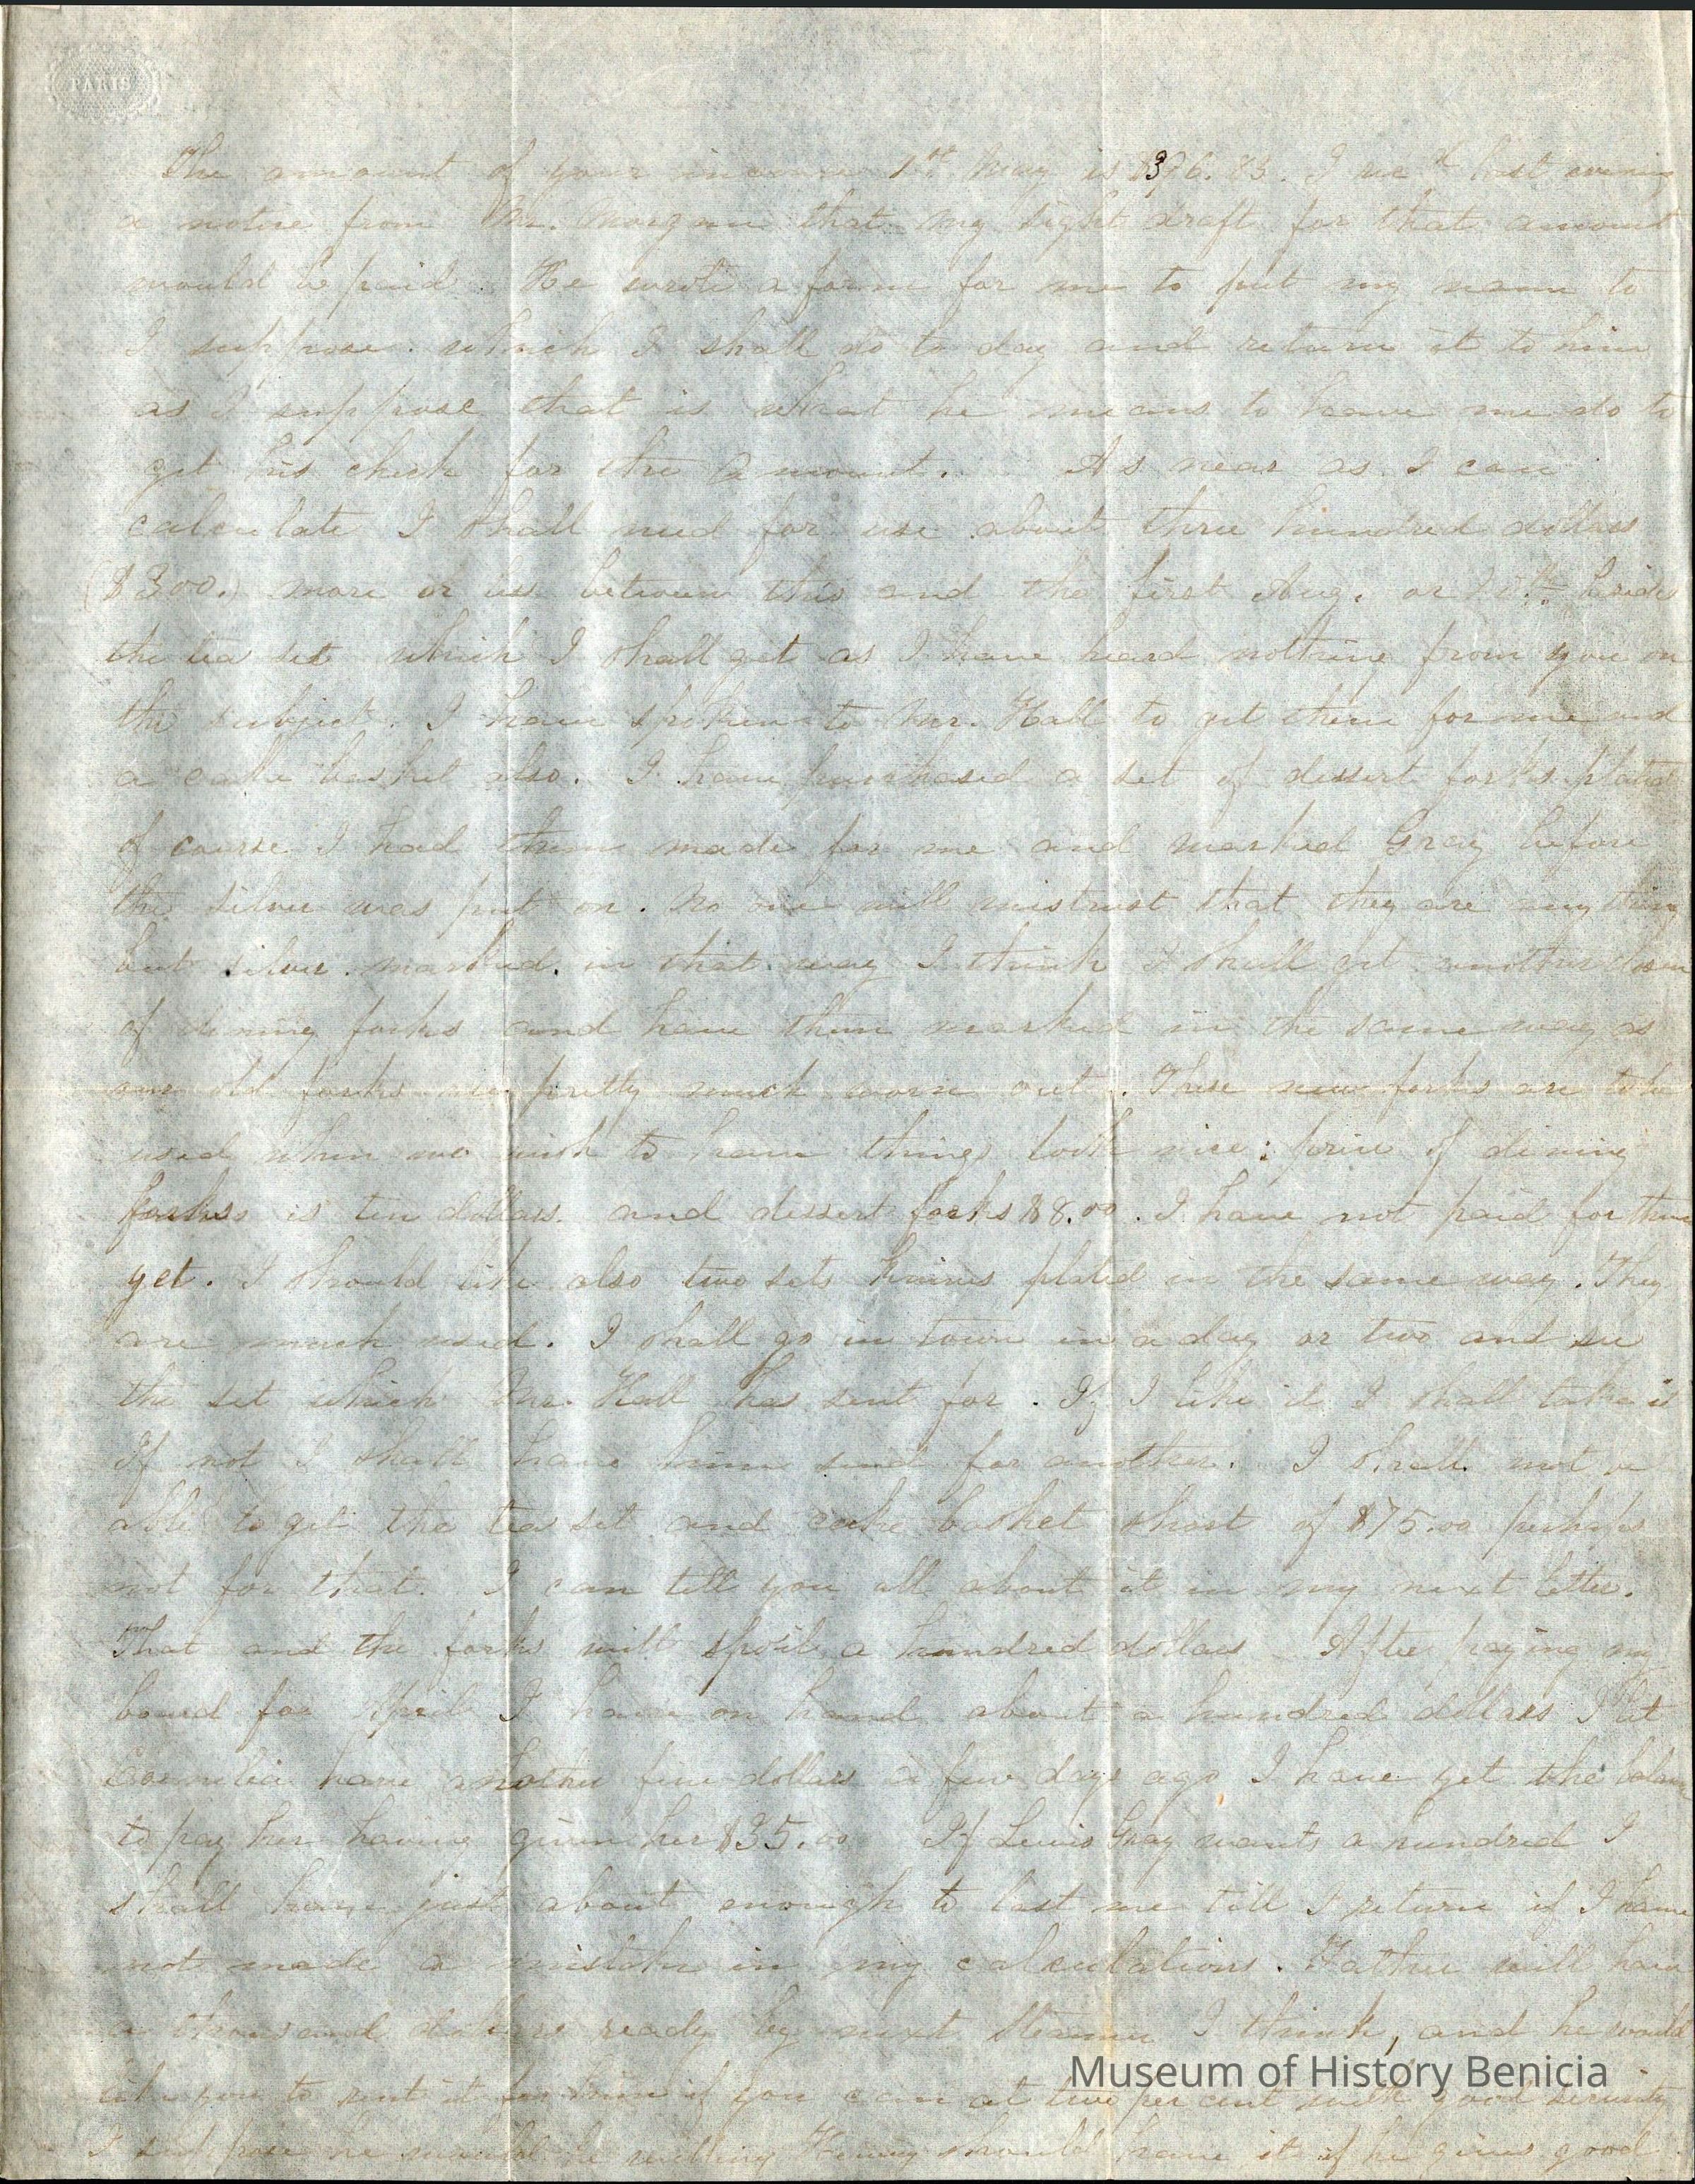 PARIS
The amount of your income 1st May is $396.83. I recd last evening
a notice from Mr. Morgan that my sight draft for that amount
would be paid. He wrote a form for me to put my name to
I suppose. which I shall do to day and return it to him
as I suppose that is what he means to have me do to
get his check for the amount. As near as I can
calculate I shall need for use about three hundred dollars
($300.) more or less between this and the first Aug. or 20th besides
the tea set which I shall get as I have heard nothing from you on
the subject. I have spoken to Mr. Hall to get them for me and
a cake basket also. I have purchased a set of dessert forks plated
of course I had them made for me and marked Gray before
the silver was put on. No one will mistrust that they are any thing
but silver marked in that way I think I shall get another dozen
of dining forks and have them marked in the same way as
our old forks are pretty much worn out. These new forks are to be
used when we wish to have things look nice: price of dining
forks is ten dollars. and dessert forks $8.00. I have not paid for them
yet. I should like also two sets knives plated in the same way. They
are much used. I shall go in town in a day or two and see
the set which Mr. Hall has sent for. If I like it I shall take it
If not I shall have him send for another. I shall not be
able to get the tea set and cake basket short of $75.00 perhaps
not for that. I can tell you all about it in my next letter.
That and the forks will spoil a hundred dollars After paying my
board for April I have on hand about a hundred dollars I let
Cornelia have another five dollars a few days ago I have yet the balance
to pay her having given her $35.00 If Lewis Gray wants a hundred I
shall have just about enough to last me till I return if I have
not made a mistake in my calculations. Father will have
a thousand dollars ready by next Steamer I think, and he would
like you to rent it for him if you can at two per cent with good security
I suppose he would be willing Henry should have it if he gives good
Museum of History Benicia